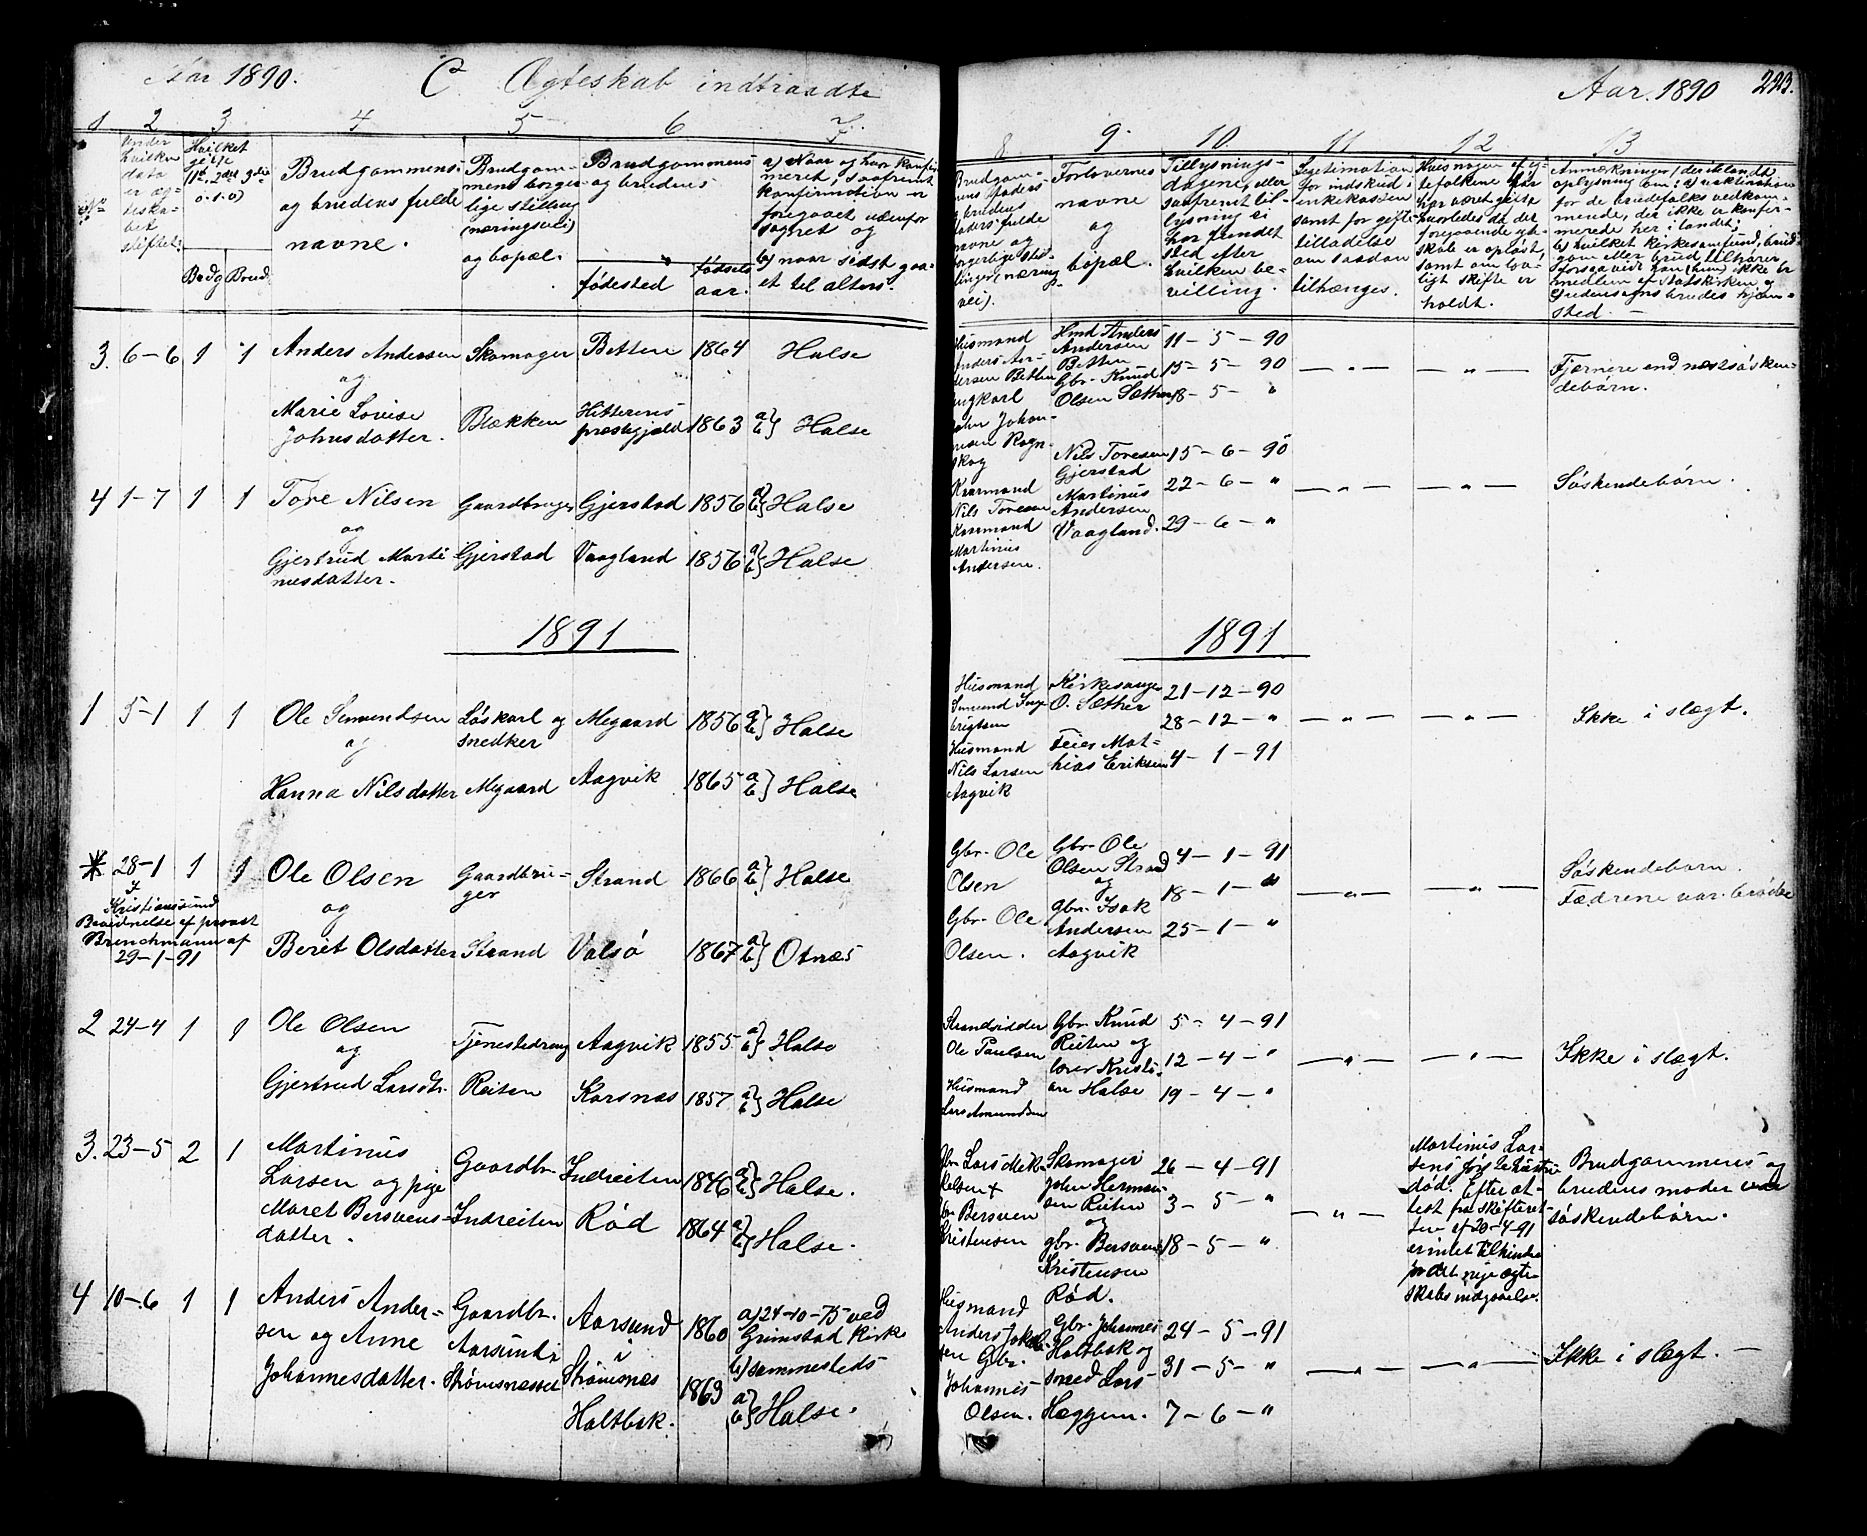 Aar 1890. C Ægteskab indtraadte
1 2 3 4 5 6 7
Under hvilken dato er ægteskabet stiftet.
Hvilket gifte (1ste, 2det, 3die o.s.v.)
Bg. Brud.
Brudgommens og brudens fulde navne.
Brudgommens borgerlige stilling (næringsvei) og bopæl.
Brudgommens og brudens
fødested
fødselsaar.
a) Naar og hvor konfirmeret, saafremt konfirmation er foregaaet udenfor sognet og
b) naar sidst gaaet til alters.
3. 6-6 1 1 Anders Andersen Skomager Betten 1864 Halse
og
Marie Lovise Johnsdatter. Blækken Hitterens præstegjæld 1863 a b} Halse
4 1-7 1 1 Tore Nilsen Gaardbruger Gjerstad 1856 a b} Halse
og
Gjertrud Martinusdatter. Gjerstad Vaagland 1856 a b} Halse
1891
1 5-1 1 1 Ole Simundsen Løskarl og snedker Megaard 1856 a b} Halse
og
Hanna Nilsdatter Megaard Aagvik 1865 a b} Halse
* 28-1 1 1 Ole Olsen Gaardbruger Strand 1866 a b} Halse
I Kristianssund
og
Bevidnelse af provst Brinchmann af 29-1-91
Beret Olsdatter Strand Valsø 1867 a b} Otnæs
2 24-4 1 1 Ole Olsen Tjenestedreng Aagvik 1855 a b} Halse
og
Gjertrud Larsdtr. Reiten Korsnæs 1857 a b} Halse
3. 23-5 2 1 Martinus Larsen og pige Gaardbr. Indreiten 1846 a b} Halse.
Maret Bersvensdatter. Indreiten Rød 1864 a b} Halse.
4 10-6 1 1 Anders Andersen og Anne Johannesdatter.
Gaardbr. Aarsund i Strømsnæsset
Aarsund i Strømsnæs 1860 a) 24-10-75 ved Grimstad kirke
b) sammesteds
Holtbak. 1863 a b} Halse.
Aar. 1890 223.
8 9 10 11 12 13
Brudgommens faders og brudens faders fulde navne og borgerlige stilling (næringsvei).
Forlovernes navne og bopæl.
Tillysningsdagene, eller saafremt tillysning ei har fundet sted efter hvilken bevilling.
Legitimation for indskud i enkekassen samt for giftetilladelse om saadan tiltrænges.
Hvis nogen af ægtefolkene før har været gifte, hvorledes da det foregaaende ægteskab er opløst, samt om lovligt skifte er holdt.
Anmærkninger, (deriblandt oplysning om: a) vaktination for de brudefolks vedkommende, der ikke er konfirmerede her i landet,
b) hvilket kirkesamfund, brudgom eller brud tilhører forsaavidt han (hun) ikke er medlem af Statskirken og
Husmand Anders Andersen Betten
Ungkarl John Johansen Rognskog
Hmd Anders Andersen Betten
Gbr. Knud Olsen Sæther
11 - 5 - 90
15 - 5 - 90
18 - 5 - "
— " — — " — Fjernere end næstsøskendebørn.
Kaarmand Nils Toresen
Kaarmand Martinus Andersen.
Nils Toresen Gjerstad
Martinus Andersen Vaagland.
15 - 6 - 90
22 - 6 - "
29 - 6 - "
— " — — " — Søskendebørn.
1891
Husmand Simund Ingebrigtsen
Husmand Nils Larsen Aagvik
Kirkesanger O. Sæther
Feier Mathias Eriksen
21-12-90
28-12- "
4 - 1 - 91
— " — — " — Ikke i slægt.
Gbr. Ole Olsen
Gbr. Ole Olsen.
Gbr. Ole Olsen Strand
og
gbr. Isak Andersen Aagvik
4 - 1 - 91
18 - 1 - "
25 - 1 - "
— " — — " — Søskendebørn.
Fædrene var brødre
Strandsidder Ole Paulsen
Husmand Lars Amundsen
Gbr. Knud Reiten og
lærer Kristian Halse
5 - 4 - 91
12 - 4 - "
19 - 4 - "
— " — — " — Ikke i slægt.
Gbr. Lars Mikkelsen +
Gbr. Bersven Kristensen
Skomager John Hermansen Reiten
og
gbr. Bersven Kristensen Rød.
26 - 4 - 91
3 - 5 - "
18 - 5 - "
— " —
Martinus Larsens første hustru død. Efter attest fra Skifteretten af 20-4-91
er intet til hinder for det nye ægteskabs indgaaelse.
Brudgommens og brudens moder var søskendebørn.
Husmand Anders
Gbr. Johannes Olsen.
Gbr. Johannes Holtbak og
smed Lars Hæggem.
24 - 5 - 91
31 - 5 - "
7 - 6 - "
— " — — " — Ikke i slægt. —